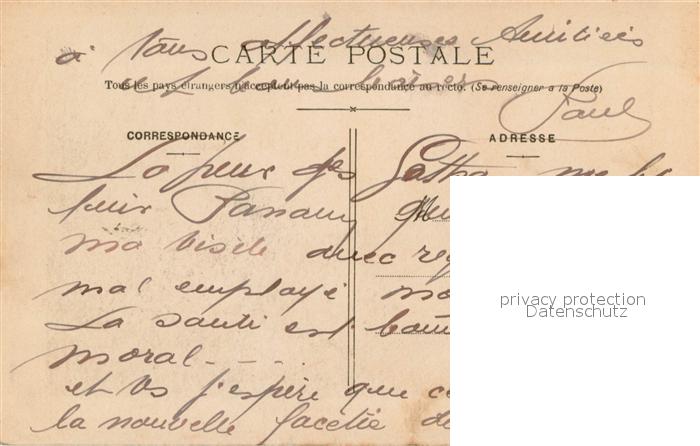 à Tous Affectueuses Amitiés
CARTE POSTALE
et bons baisers
Tous les pays étrangers n'acceptent pas la correspondance au recto. (Se renseigner à la Poste)
Paul
CORRESPONDANCE
ADRESSE
La peur des Gotha me
ma visite avec
mal employé
La santé est bonne
moral - - - .
et Vs j'espère que
la nouvelle facétie de
privacy protection
Datenschutz